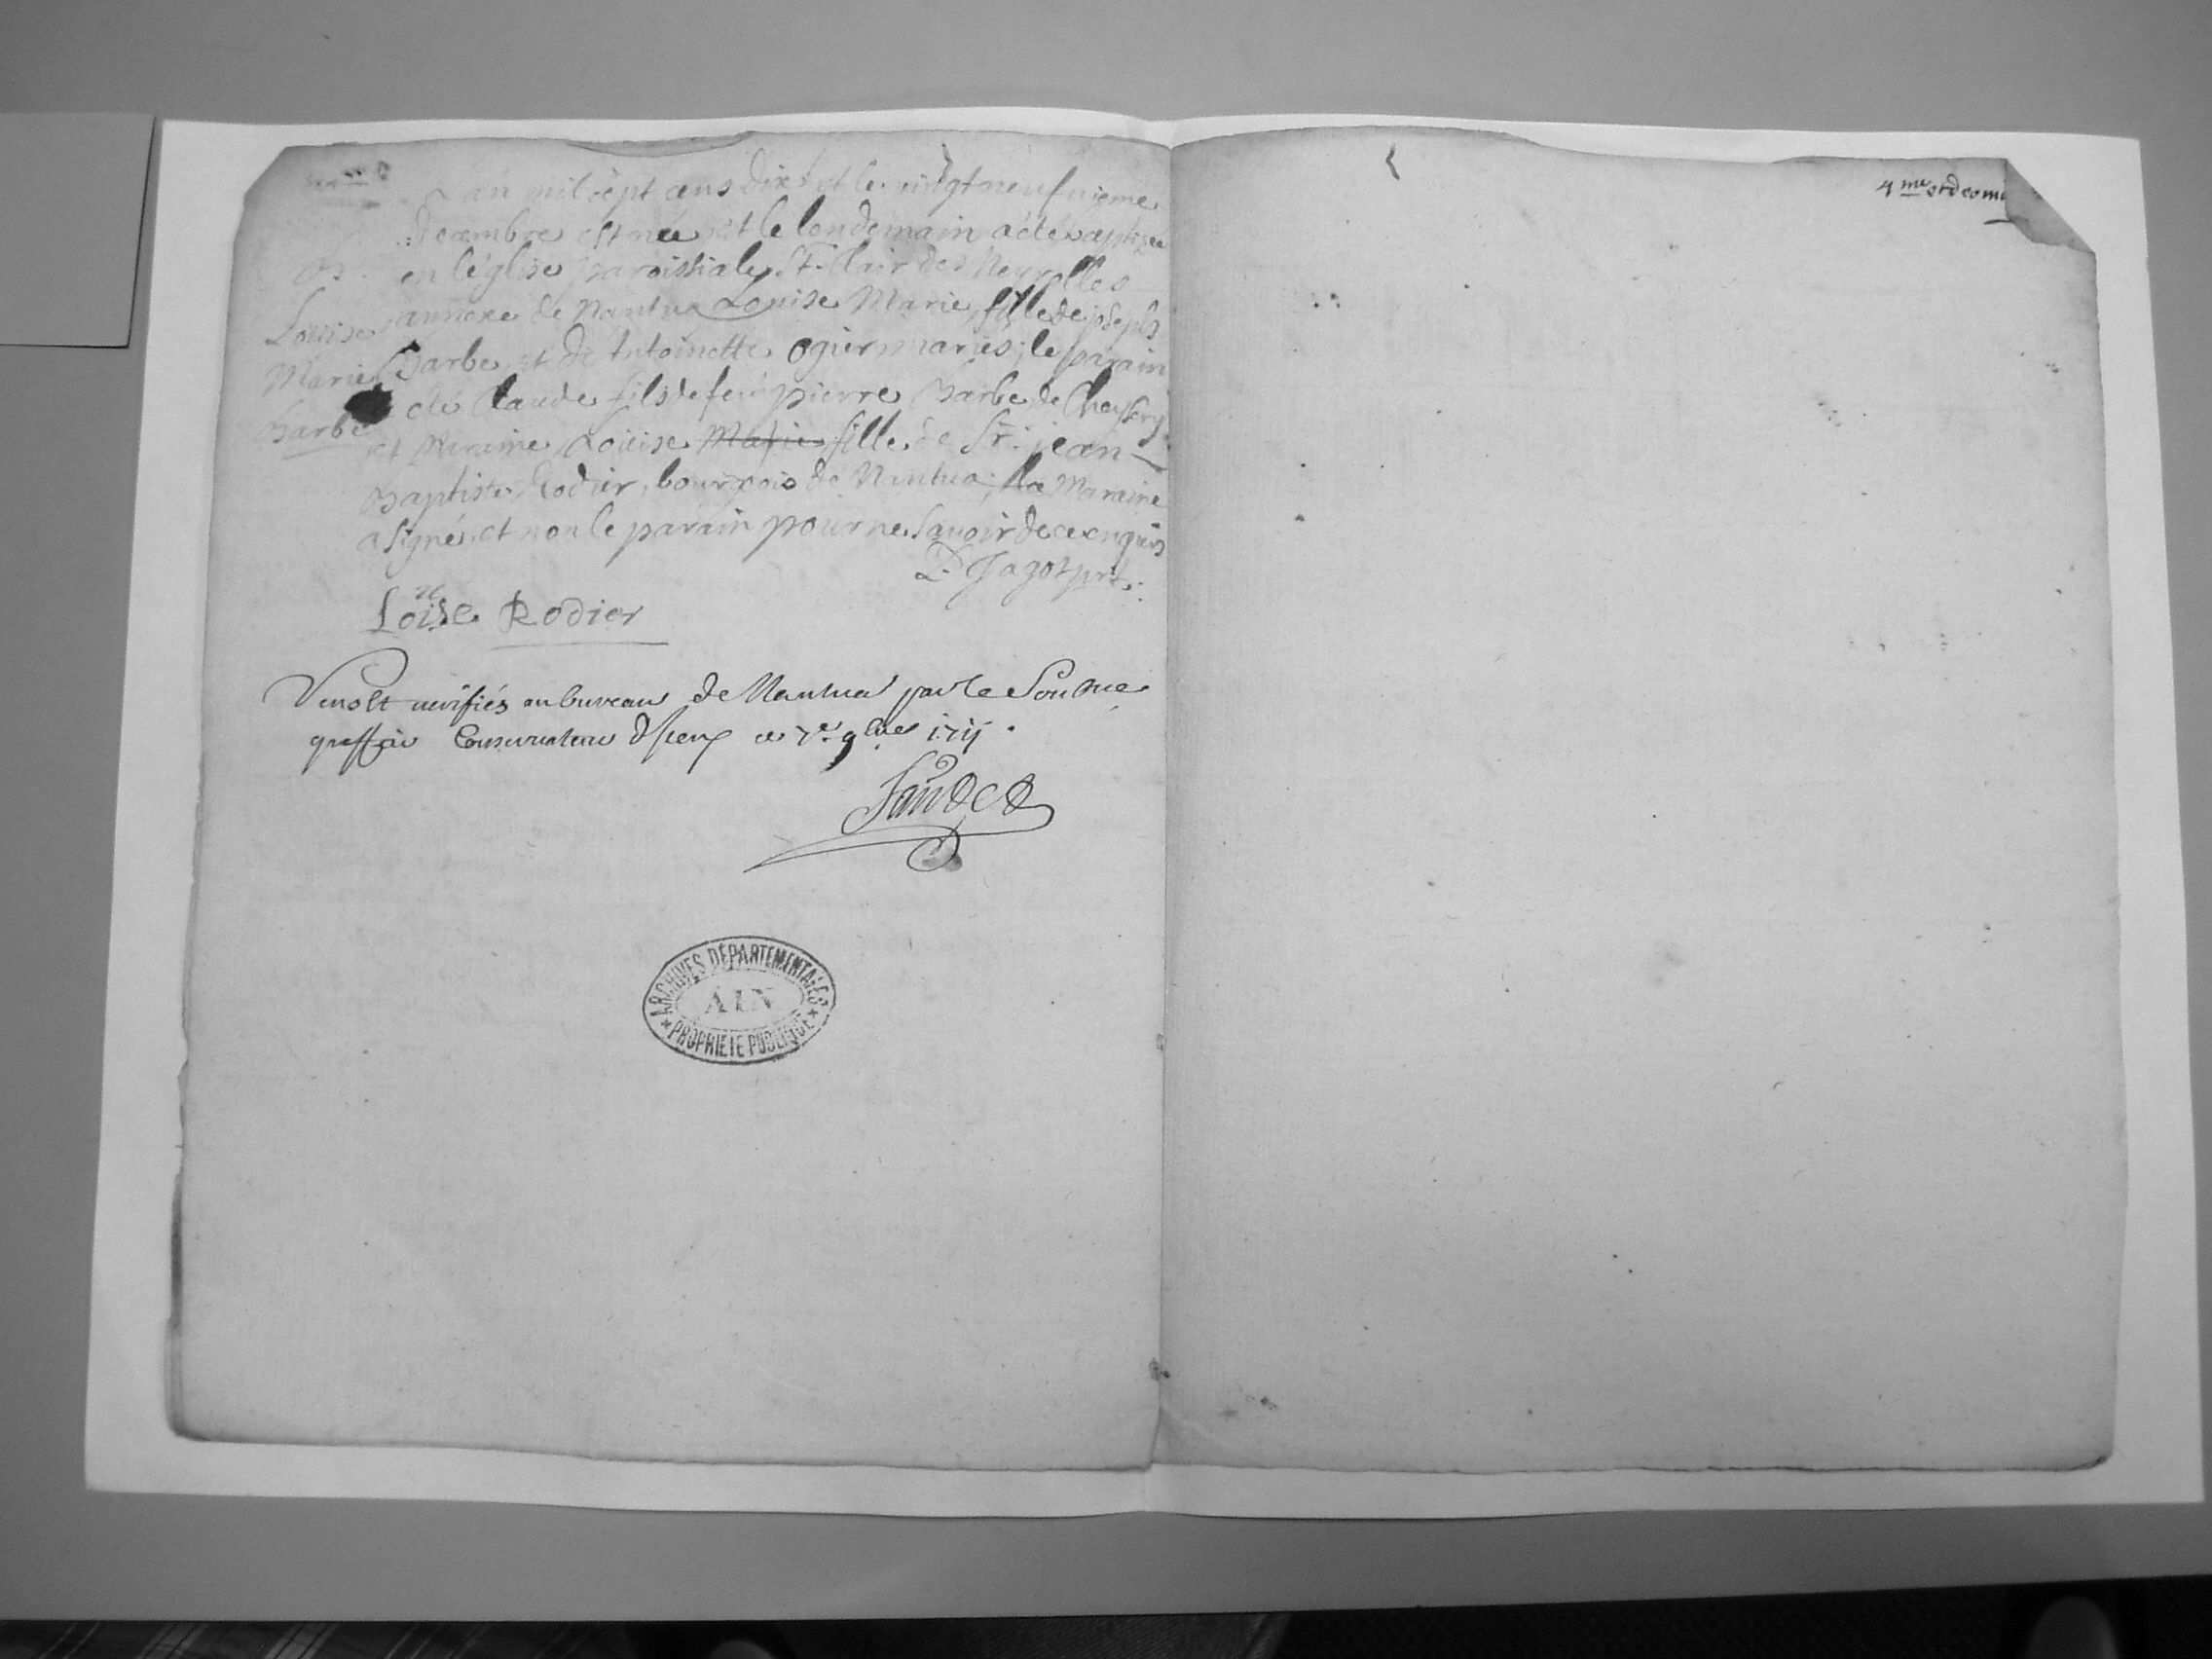 an mil sept cens dix et le vingt neufuieme
decembre est née et le lendemain a été baptizée
en l'église paroissiale St. Clair des Neyrolles
annexe de Nantua Louise Marie, fille de joseph
Barbe et de Antoinette ogier mariés; le parain
été Claude fils de feu pierre Barbe de
et Maraine Loüise Marie fille de Sr. jean
Baptiste Rodier, bourgois de Nantua; la Maraine
a signé et non le parain pour ne savoir de ce enquis
Jagot
B.
Louise
Marie
Barbe
Loïse Rodier
Veus et verifiés au bureau de Nantua par le
greffier Conservateur d'iceux ce 7e. 9bre 1711.
ARCHIVES DÉPARTEMENTALES
AIN
PROPRIÉTÉ PUBLIQUE
4me